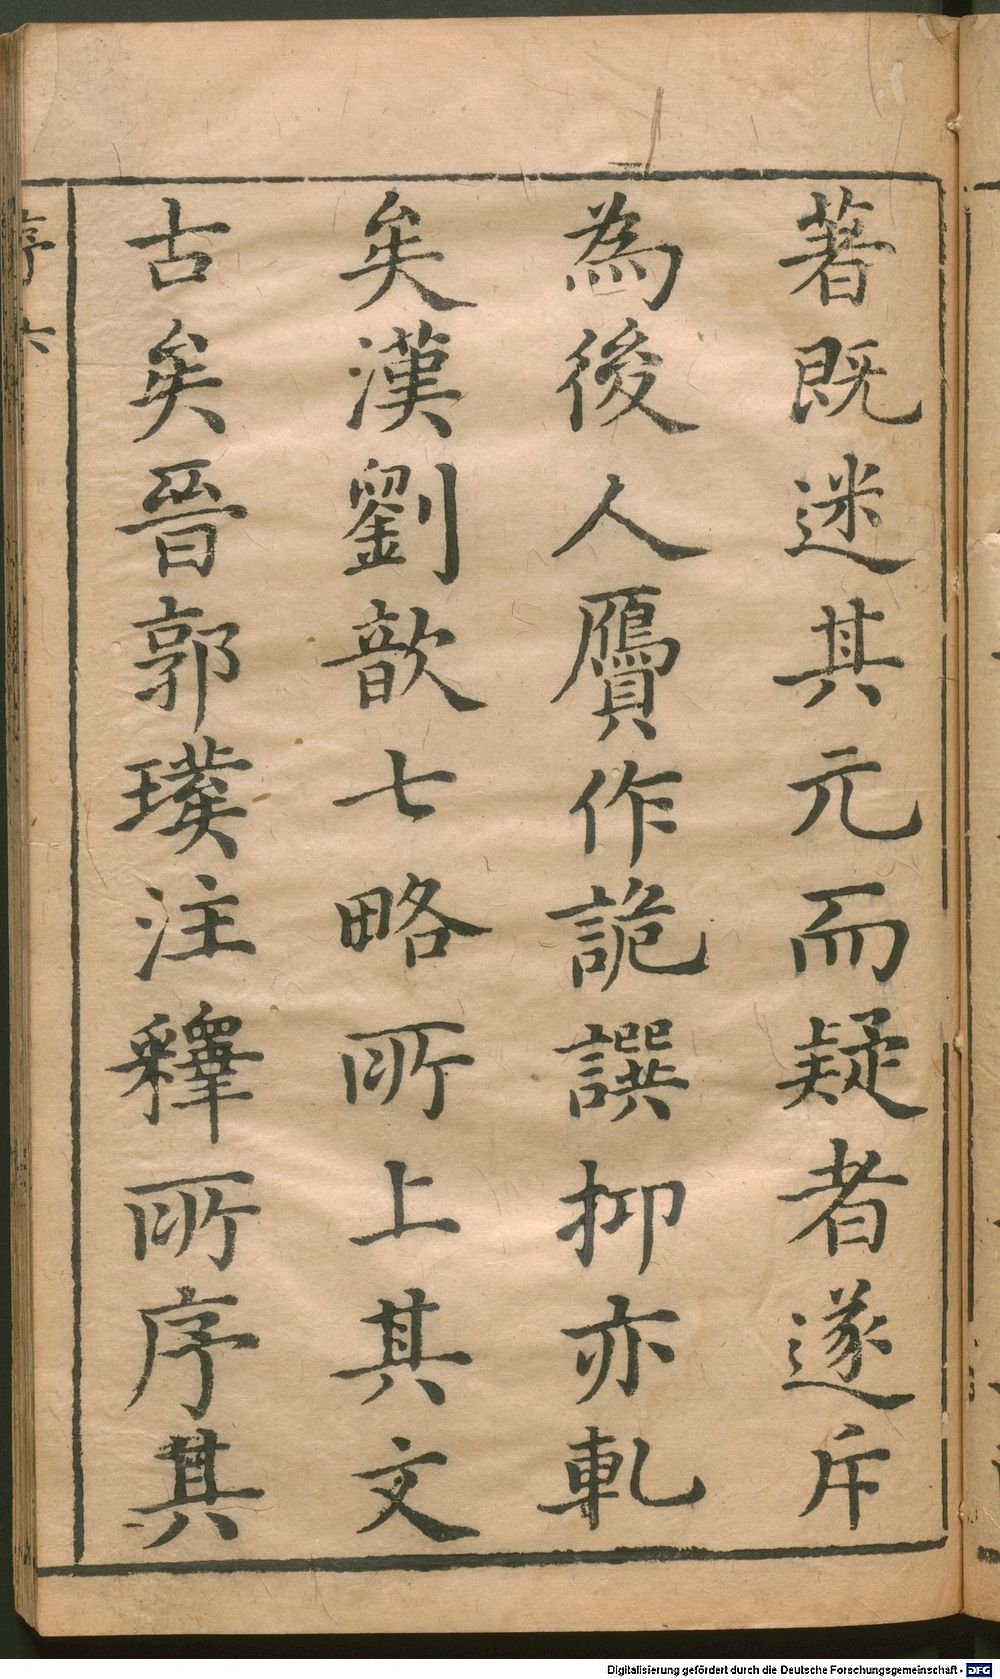 著既迷其元而疑者遂斥
為後人贋作詭譔抑亦軋
矣漢劉歆七略所上其文
古矣晉郭璞注釋所序其
序 六
Digitalisierung gefördert durch die Deutsche Forschungsgemeinschaft - DFG